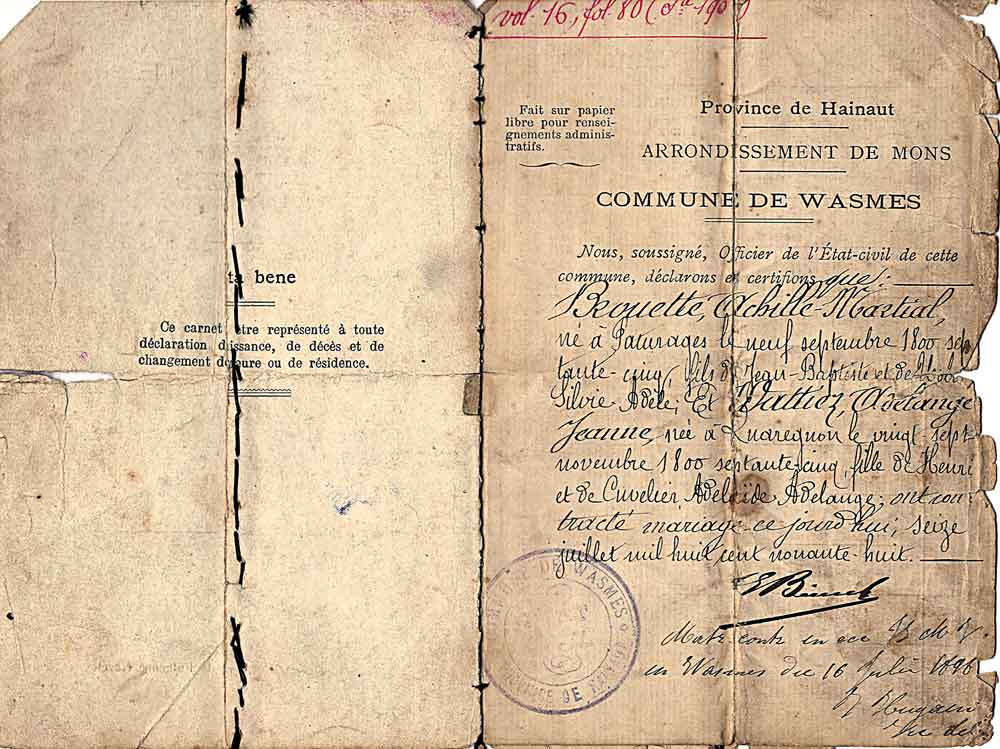 ta bene
Ce carnet être représenté à toute
déclaration d issance, de décès et de
changement d eure ou de résidence.
vol. 16, fol. 80
Fait sur papier
libre pour rensei-
gnements adminis-
tratifs.
Province de Hainaut
ARRONDISSEMENT DE MONS
COMMUNE DE WASMES
Nous, soussigné, Officier de l'État-civil de cette
commune, déclarons et certifions que:
Brouette, Achille-Martial,
né à Paturages le neuf septembre 1800 sep
tante-cinq, fils de Jean-Baptiste et de
Silvie Adèle; Et Wattiez, Adelange
Jeanne, née à Quaregnon le vingt-sept
novembre 1800 septante-cinq, fille de Henri
et de Cuvelier Adelaïde Adelange; ont con
tracté mariage ce jourd'hui, seize
juillet mil huit cent nonante-huit.
DE WASMES
in Wasmes du 16